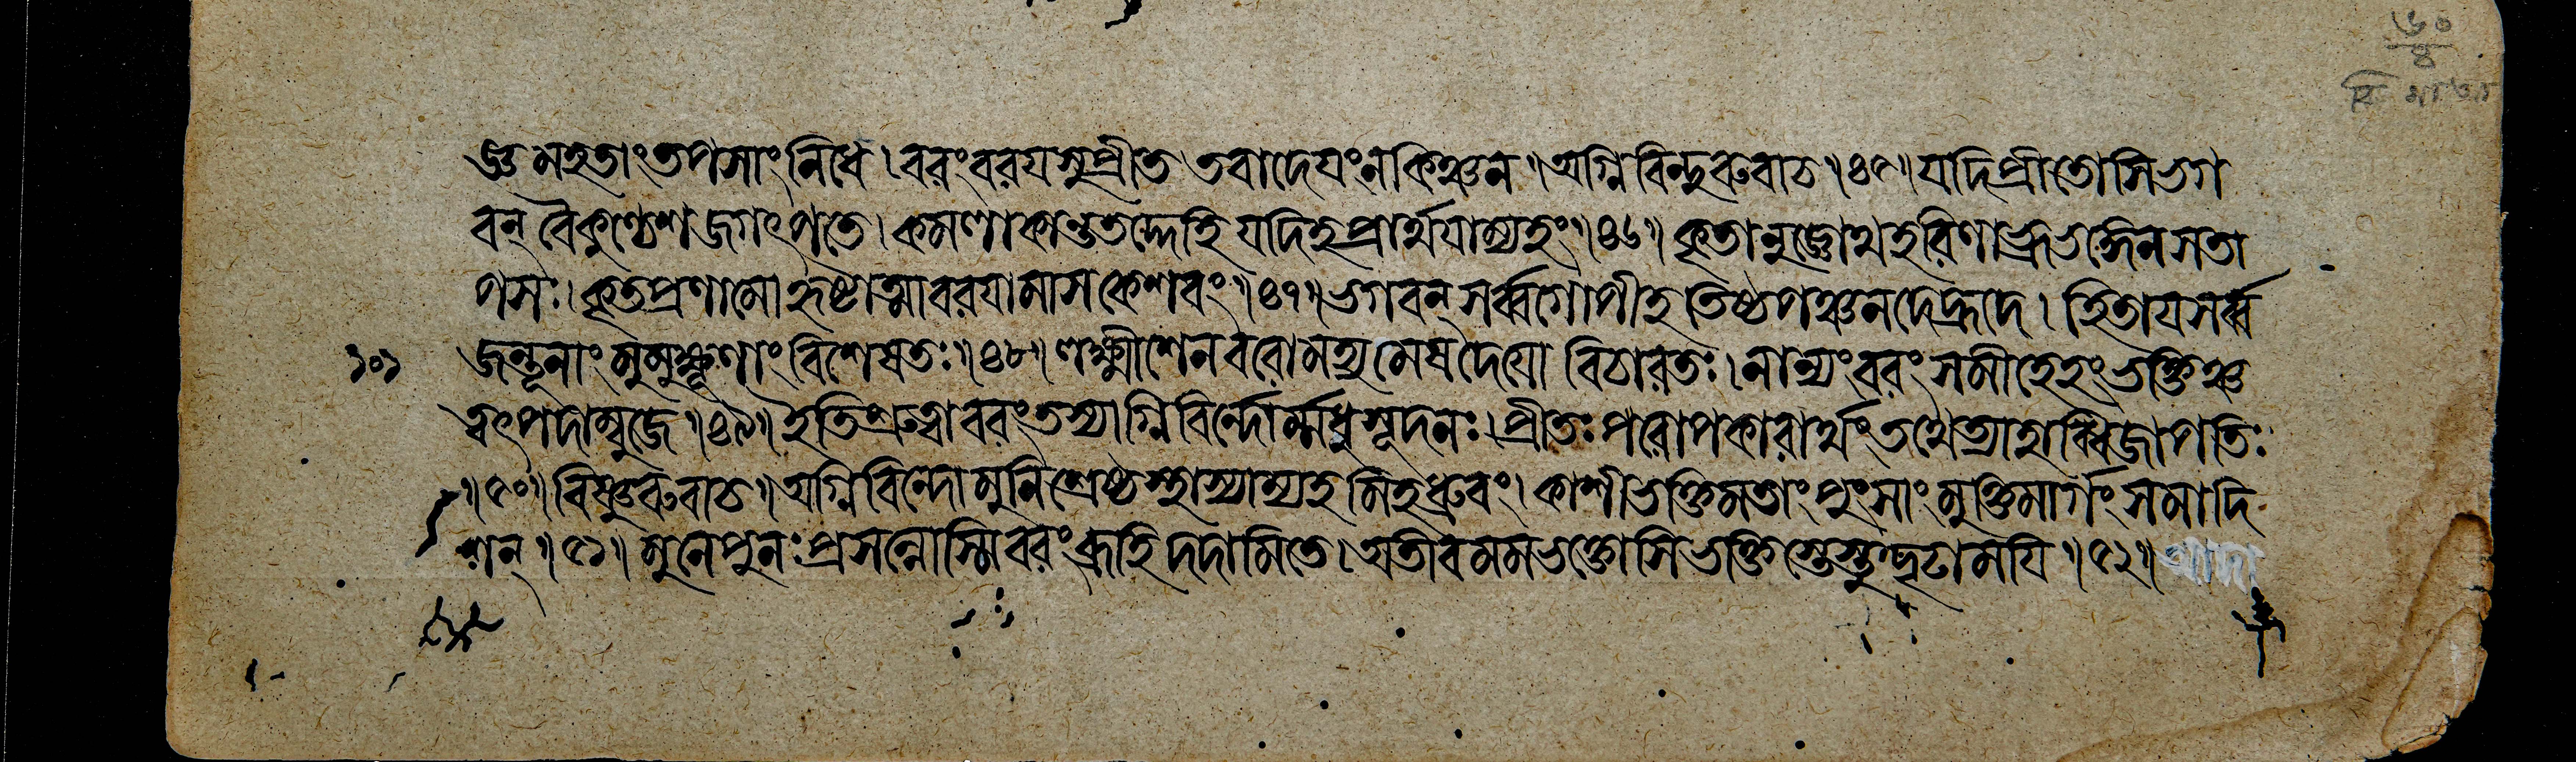 ৬০
৪
ণ্ড মহতাং তপসাং নিধে । বরং বরয সুপ্রীত তবাদেযং ন কিঞ্চন ॥ অগ্নিবিন্দুরুবাচ ॥ ৪৫ ॥ যদি প্রীতোসি ভগ
বন্ বৈকুণ্ঠেশ জগৎপতে । কমলাকান্ত তদ্দেহি যদিহ প্রার্থযাম্যহং ॥ ৪৬ ॥ কৃতানুজ্ঞোথ হরিণা ভ্রূভঙ্গেন স তা
পসঃ । কৃতপ্রণামো হৃষ্টাত্মা বরযামাস কেশবং ॥ ৪৭ ॥ ভগবন্ সর্ব্বগোপীহ তিষ্ঠ পঞ্চনদে হ্রদে । হিতায সর্ব্ব
১০১ জন্তূনাং মুমুক্ষূণাং বিশেষতঃ ॥ ৪৮ ॥ লক্ষ্মীশেন বরো মহ্যমেষ দেযো বিচারতঃ । নান্যং বরং সমীহেহং ভক্তিঞ্চ
ত্বৎপদাম্বুজে ॥ ৪৯ ॥ ইতি শ্রুত্বা বরং তস্যাগ্নিবিন্দোর্ম্মধুসূদনঃ । প্রীতঃ পরোপকারার্থং তথেত্যাহাব্ধিজাপতিঃ
॥ ৫০ ॥ বিষ্ণুরুবাচ ॥ অগ্নিবিন্দো মুনিশ্রেষ্ঠ স্থাস্যাম্যহমিহ ধ্রুবং । কাশীভক্তিমতাং পুংসাং মুক্তিমার্গং সমাদি
শন্ ॥ ৫১ ॥ মুনে পুনঃ প্রসন্নোস্মি বরং ব্রূহি দদামি তে । অতীব মম ভক্তোসি ভক্তিস্তেস্তু দৃঢা মযি ॥ ৫২ ॥ আদা